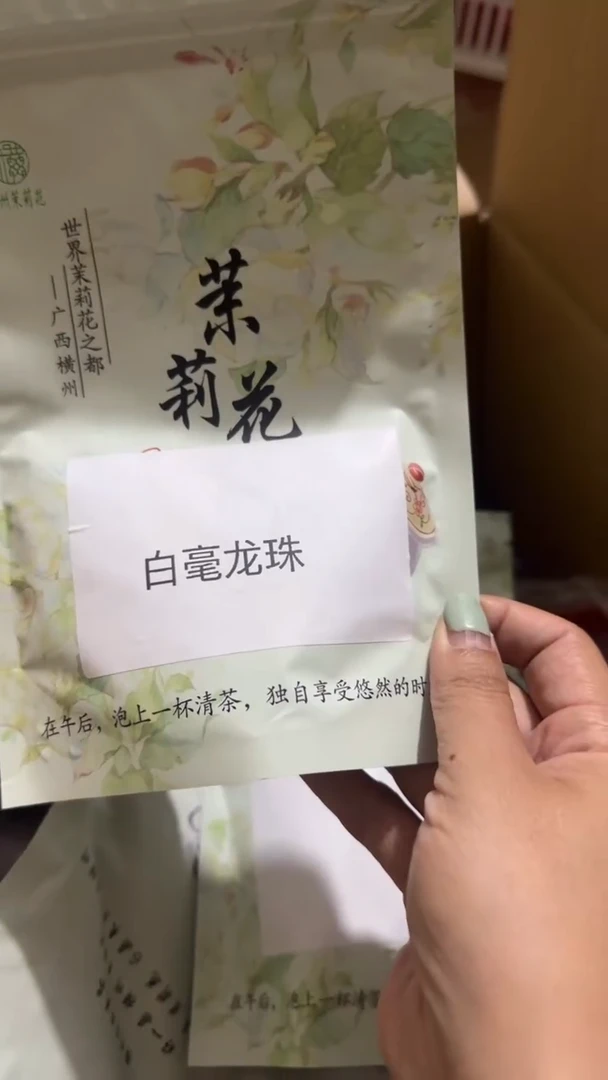 州茉莉花
世界茉莉花之都
—广西横州
茉莉花
白毫龙珠
在午后，泡上一杯清茶，独自享受悠然的时
在午后，泡上一杯清